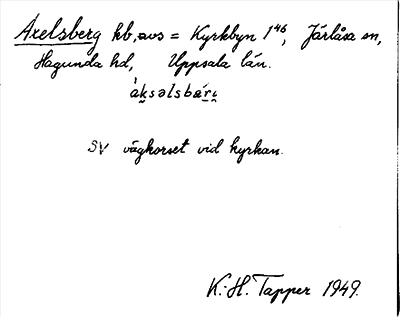 Axelsberg hb, avs = Kyrkbyn 1⁴⁶, Järlåsa sn,
Hagunda hd, Uppsala län.
àksəlsbærı
SV vägkorset vid kyrkan.
K.-H. Tapper 1949.